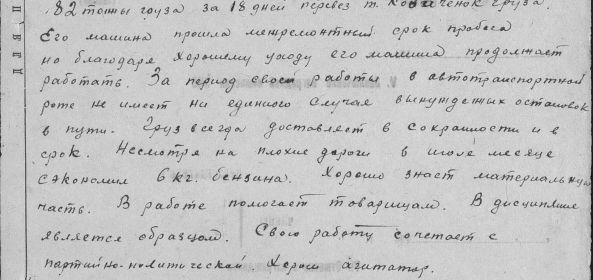 82 тонны груза за 18 дней перевез т. Ковпченок груза.
Его машина прошла межремонтный срок пробега
но благодаря хорошему уходу его машина продолжает
работать. За период своей работы в автотранспортной
роте не имеет ни единого случая вынужденных остановок
в пути. Груз всегда доставляет в сохранности и в
срок. Несмотря на плохие дороги в июле месяце
сэкономил 6 кг. бензина. Хорошо знает материальную
часть. В работе помогает товарищам. В дисциплине
является образцом. Свою работу сочетает с
партийно-политической Хорош агитатор.